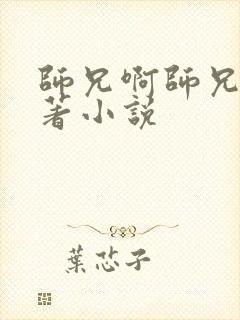 師兄啊師兄
著小說
葉芯子